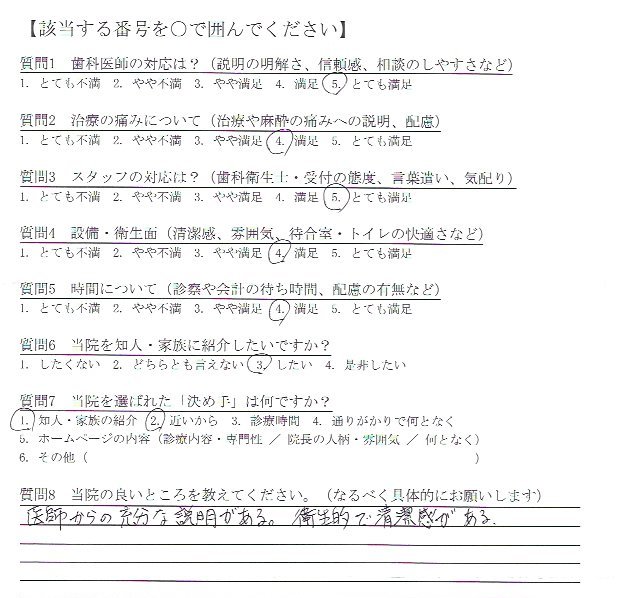 【該当する番号を○で囲んでください】
質問1 歯科医師の対応は?(説明の明解さ、信頼感、相談のしやすさなど)
1. とても不満 2. やや不満 3. やや満足 4. 満足 5. とても満足
質問2 治療の痛みについて(治療や麻酔の痛みへの説明、配慮)
1. とても不満 2. やや不満 3. やや満足 4. 満足 5. とても満足
質問3 スタッフの対応は?(歯科衛生士・受付の態度、言葉遣い、気配り)
1. とても不満 2. やや不満 3. やや満足 4. 満足 5. とても満足
質問4 設備・衛生面(清潔感、雰囲気、待合室・トイレの快適さなど)
1. とても不満 2. やや不満 3. やや満足 4. 満足 5. とても満足
質問5 時間について(診察や会計の待ち時間、配慮の有無など)
1. とても不満 2. やや不満 3. やや満足 4. 満足 5. とても満足
質問6 当院を知人・家族に紹介したいですか?
1. したくない 2. どちらとも言えない 3. したい 4. 是非したい
質問7 当院を選ばれた「決め手」は何ですか?
1. 知人・家族の紹介 2. 近いから 3. 診療時間 4. 通りがかりで何となく
5. ホームページの内容(診療内容・専門性 / 院長の人柄・雰囲気 / 何となく)
6. その他( )
質問8 当院の良いところを教えてください。(なるべく具体的にお願いします)
医師からの充分な説明がある。衛生的で清潔感がある。